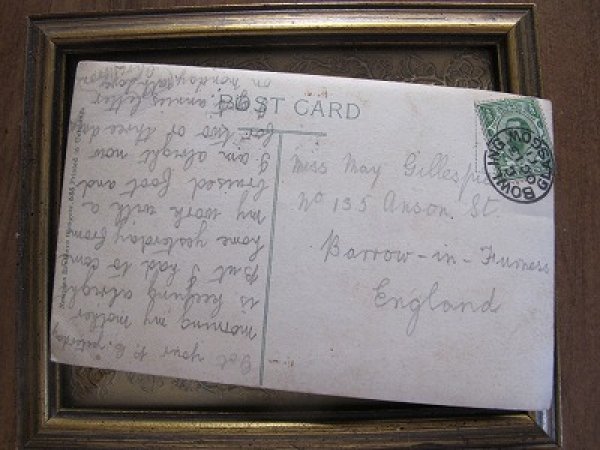 POST CARD
Miss May Gillespie
No 135 Anson St.
Barrow-in-Furness
England
BOWLING GLASGOW
Got your P.C. yesterday
morning my mother
is keeping alright
But I had to come
home yesterday from
my work with a
bruised foot and
I am alright now
for two or three days
annies letter
on monday